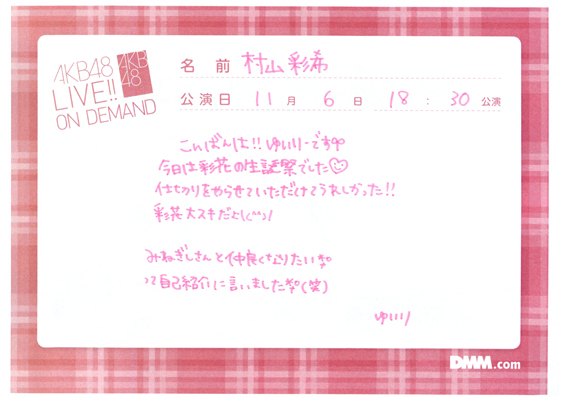 AKB48
LIVE!!
ON DEMAND
AKB
48
名前 村山彩希
公演日 11月 6日 18:30 公演
こんばんは!! ゆいりーです
今日は彩花の生誕祭でした
仕切りをやらせていただけてうれしかった!!
彩花大スキだよ(^^)!
みねぎしさんと仲良くなりたい
って自己紹介に言いました(笑)
ゆいり
DMM.com